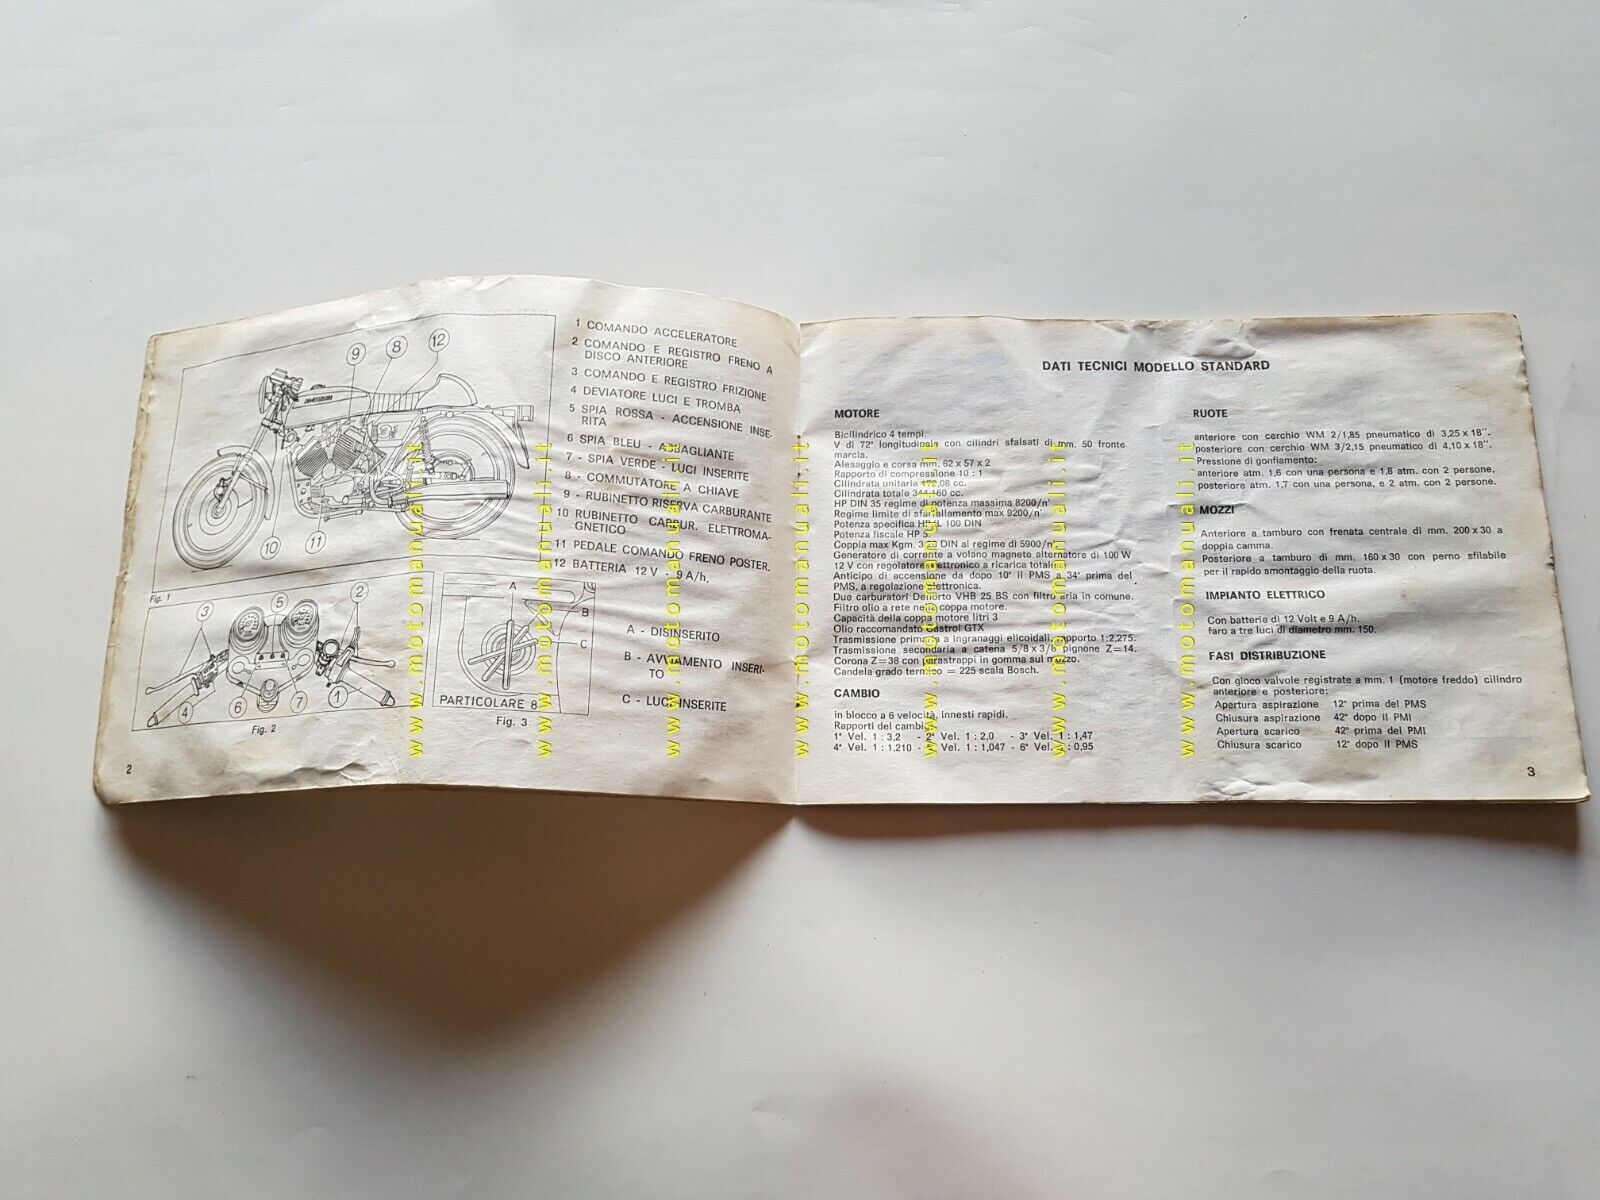 1 COMANDO ACCELERATORE
2 COMANDO E REGISTRO FRENO A
DISCO ANTERIORE
3 COMANDO E REGISTRO FRIZIONE
4 DEVIATORE LUCI E TROMBA
5 SPIA ROSSA - ACCENSIONE INSE-
RITA
6 SPIA BLEU - ABBAGLIANTE
7 - SPIA VERDE - LUCI INSERITE
8 - COMMUTATORE A CHIAVE
9 - RUBINETTO RISERVA CARBURANTE
10 RUBINETTO CARBUR. ELETTROMA-
GNETICO
11 PEDALE COMANDO FRENO POSTER.
12 BATTERIA 12 V - 9 A/h.
9 8 12
10 11
Fig. 1
3 5 2
4 6 7 1
Fig. 2
A
B
C
PARTICOLARE 8
Fig. 3
A - DISINSERITO
B - AVVIAMENTO INSERI-
TO
C - LUCI INSERITE
2
DATI TECNICI MODELLO STANDARD
MOTORE
Bicilindrico 4 templ.
V di 72° longitudinale con cilindri sfalsati di mm. 50 fronte
marcia.
Alesaggio e corsa mm. 62 x 57 x 2
Rapporto di compressione 10 : 1
Cilindrata unitaria 172,08 cc.
Cilindrata totale 344,160 cc.
HP DIN 35 regime di potenza massima 8200/n°
Regime limite di sfarfallamento max 9200/n°
Potenza specifica HP/L 100 DIN
Potenza fiscale HP 5.
Coppia max Kgm. DIN al regime di 5900/n°
Generatore di corrente a volano magnete alternatore di 100 W
12 V con regolatore elettronico a ricarica totale.
Anticipo di accensione da dopo 10° il PMS a 34° prima del
PMS, a regolazione elettronica.
Due carburatori Dellorto VHB 25 BS con filtro aria in comune.
Filtro olio a rete nella coppa motore.
Capacità della coppa motore litri 3
Olio raccomandato Castrol GTX
Trasmissione primaria a ingranaggi elicoidali, rapporto 1:2,275.
Trasmissione secondaria a catena 5/8 x 3/8 pignone Z=14.
Corona Z=38 con parastrappi in gomma sul mozzo.
Candela grado termico = 225 scala Bosch.
CAMBIO
in blocco a 6 velocità, innesti rapidi.
Rapporti del cambio
1ª Vel. 1 : 3,2 - 2ª Vel. 1 : 2,0 - 3ª Vel. 1 : 1,47
4ª Vel. 1 : 1,210 - 5ª Vel. 1 : 1,047 - 6ª Vel. 1 : 0,95
RUOTE
anteriore con cerchio WM 2/1,85 pneumatico di 3,25 x 18".
posteriore con cerchio WM 3/2,15 pneumatico di 4,10 x 18".
Pressione di gonfiamento:
anteriore atm. 1,6 con una persona e 1,8 atm. con 2 persone,
posteriore atm. 1,7 con una persona, e 2 atm. con 2 persone.
MOZZI
Anteriore a tamburo con frenata centrale di mm. 200 x 30 a
doppia camma.
Posteriore a tamburo di mm. 160 x 30 con perno sfilabile
per il rapido smontaggio della ruota.
IMPIANTO ELETTRICO
Con batteria di 12 Volt e 9 A/h.
faro a tre luci di diametro mm. 150.
FASI DISTRIBUZIONE
Con gioco valvole registrate a mm. 1 (motore freddo) cilindro
anteriore e posteriore:
Apertura aspirazione 12° prima del PMS
Chiusura aspirazione 42° dopo il PMI
Apertura scarico 42° prima del PMI
Chiusura scarico 12° dopo il PMS
3
www.motomanuali.it
www.motomanuali.it
www.motomanuali.it
www.motomanuali.it
www.motomanuali.it
www.motomanuali.it
www.motomanuali.it